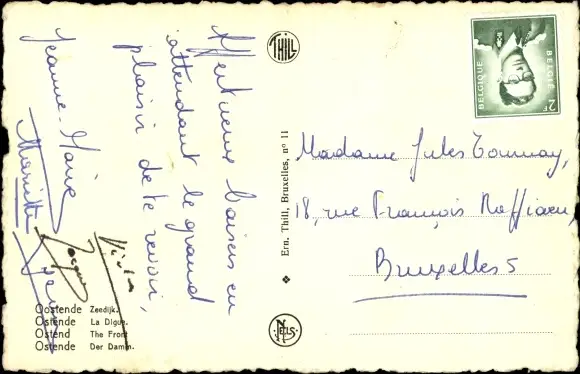 Affectueux baisers en
attendant le grand
plaisir de te revoir,
Jeanne-Marie
Mariette
Jacques
Oostende Zeedijk.
Ostende La Digue.
Ostend The Front
Ostende Der Damm.
THILL
Ern. Thill, Bruxelles, n° 11
NELS
BELGIQUE
BELGIË
2F
Madame Jules Tournay,
18, rue François Roffiaen,
Bruxelles 5